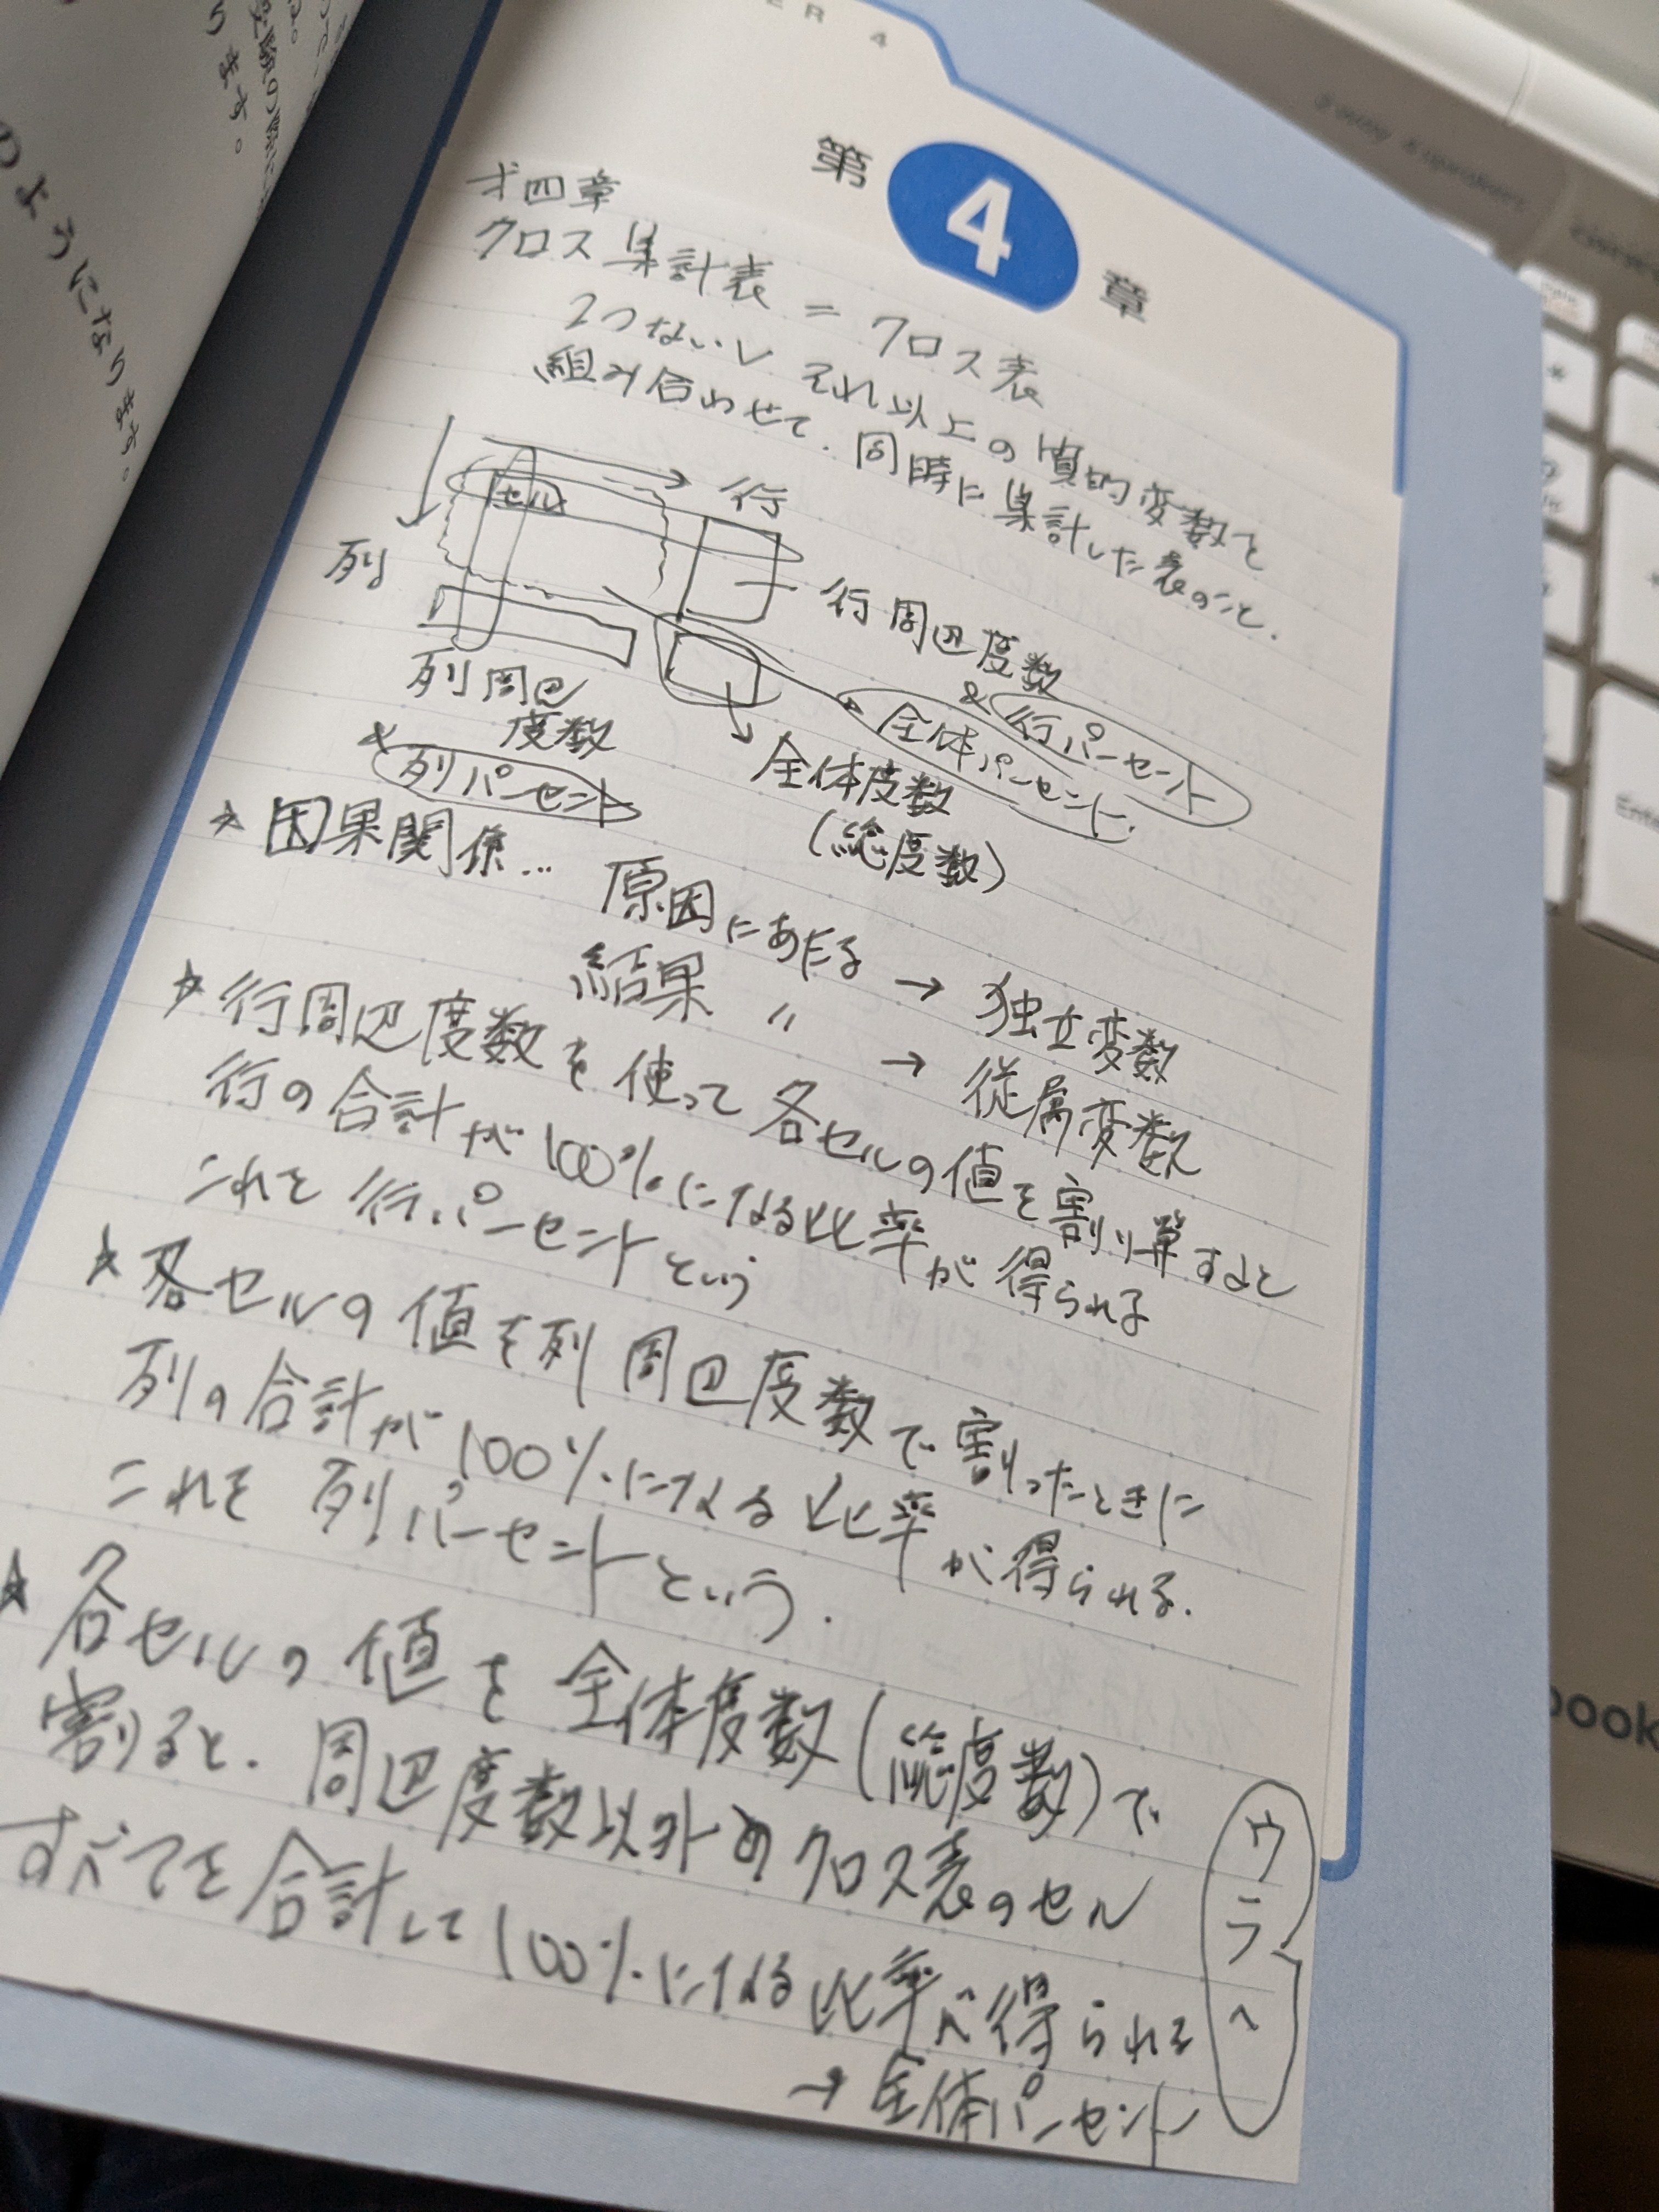 第 4 章
才四章
クロス集計表 = クロス表
2つないしそれ以上の質的変数を
組み合わせて、同時に集計した表のこと.
行
セル
列
行周辺度数
& 行パーセント
列周辺
度数
& 列パーセント
全体パーセント.
全体度数
(総度数)
☆ 因果関係… 原因にあたる → 独立変数
結果 〃 → 従属変数
☆ 行周辺度数を使って各セルの値を割り算すると
行の合計が100%になる比率が得られる
これを行パーセントという
☆ 各セルの値を列周辺度数で割ったときに
列の合計が100%になる比率が得られる.
これを列パーセントという.
☆ 各セルの値を全体度数(総度数)で
割ると、周辺度数以外のクロス表のセル
すべてを合計して100%になる比率が得られる
→ 全体パーセント
ウラへ
のようになります。
ります。
Enter
book